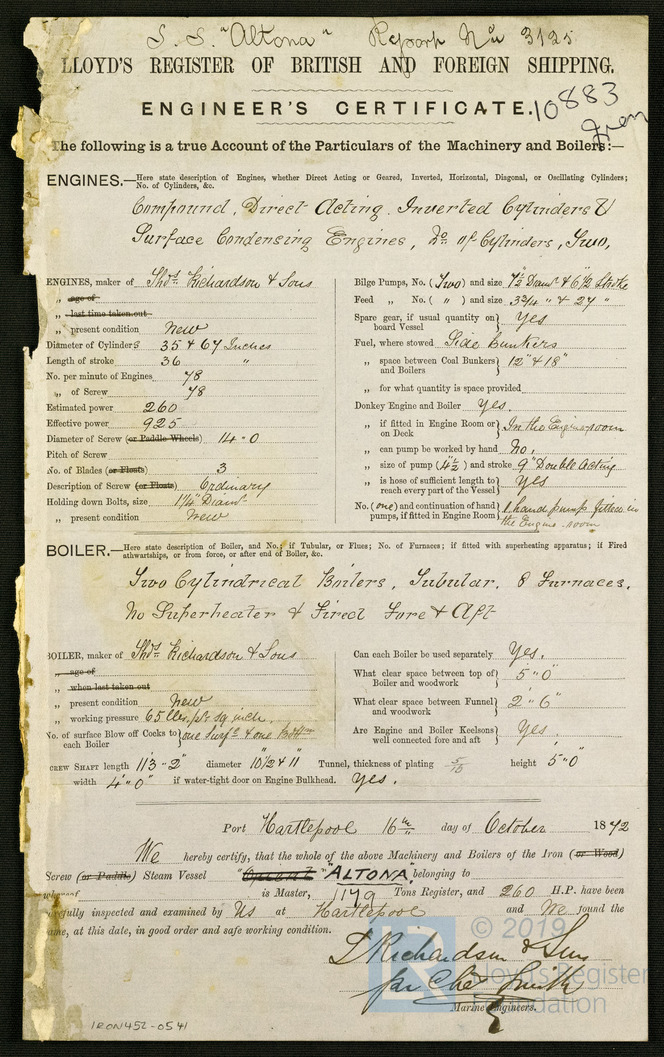 S. S. "Altona" Report No 3125
LLOYD'S REGISTER OF BRITISH AND FOREIGN SHIPPING.
ENGINEER'S CERTIFICATE.
10883
Iron
The following is a true Account of the Particulars of the Machinery and Boilers:—
ENGINES.—Here state description of Engines, whether Direct Acting or Geared, Inverted, Horizontal, Diagonal, or Oscillating Cylinders;
No. of Cylinders, &c.
Compound, Direct Acting, Inverted Cylinders &
Surface Condensing Engines, No of Cylinders, Two,
ENGINES, maker of Thos. Richardson & Sons
„ age of
„ last time taken out
„ present condition New
Diameter of Cylinders 35 & 67 Inches
Length of stroke 36 "
No. per minute of Engines 78
„ of Screw 78
Estimated power 260
Effective power 925
Diameter of Screw (or Paddle Wheels) 14-0
Pitch of Screw
No. of Blades (or Floats) 3
Description of Screw (or Floats) Ordinary
Holding down Bolts, size 1¼" Diamr
„ present condition New
Bilge Pumps, No. (Two) and size 7½ Diamr & 6½ Stroke
Feed „ No. ( " ) and size 3¾ " & 27 "
Spare gear, if usual quantity on board Vessel } Yes
Fuel, where stowed Side bunkers
„ space between Coal Bunkers and Boilers } 12" & 18"
„ for what quantity is space provided
Donkey Engine and Boiler Yes.
„ if fitted in Engine Room or on Deck } In the Engine room
„ can pump be worked by hand No.
„ size of pump (4½) and stroke 9" Double Acting
„ is hose of sufficient length to reach every part of the Vessel } Yes
No. (one) and continuation of hand pumps, if fitted in Engine Room } 1 hand pump fitted in the Engine-room
BOILER.—Here state description of Boiler, and No.; if Tubular, or Flues; No. of Furnaces; if fitted with superheating apparatus; if Fired
athwartships, or from force, or after end of Boiler, &c.
Two Cylindrical Boilers, Tubular, 8 Furnaces,
No Superheater & Fired Fore & Aft
BOILER, maker of Thos. Richardson & Sons
„ age of
„ when last taken out
„ present condition New
„ working pressure 65 lbs/pr sq inch.
No. of surface Blow off Cocks to each Boiler } one Surfe & one Bottm
Can each Boiler be used separately Yes.
What clear space between top of Boiler and woodwork } 5"0"
What clear space between Funnel and woodwork } 2"6"
Are Engine and Boiler Keelsons well connected fore and aft } Yes.
SCREW SHAFT length 113-2" diameter 10½ & 11" Tunnel, thickness of plating 5/10 height 5"0"
width 4"0" if water-tight door on Engine Bulkhead. Yes.
Port Hartlepool 16th day of October 1872
We hereby certify, that the whole of the above Machinery and Boilers of the Iron (or Wood)
Screw (or Paddle) Steam Vessel "ALTONA" belonging to
whereof is Master, 1179 Tons Register, and 260 H.P. have been
carefully inspected and examined by Us at Hartlepool and We found the
same, at this date, in good order and safe working condition.
T Richardson & Sons
per Chs Smith
Marine Engineers.
© 2019
Lloyd's Register
Foundation
IRON452-0541